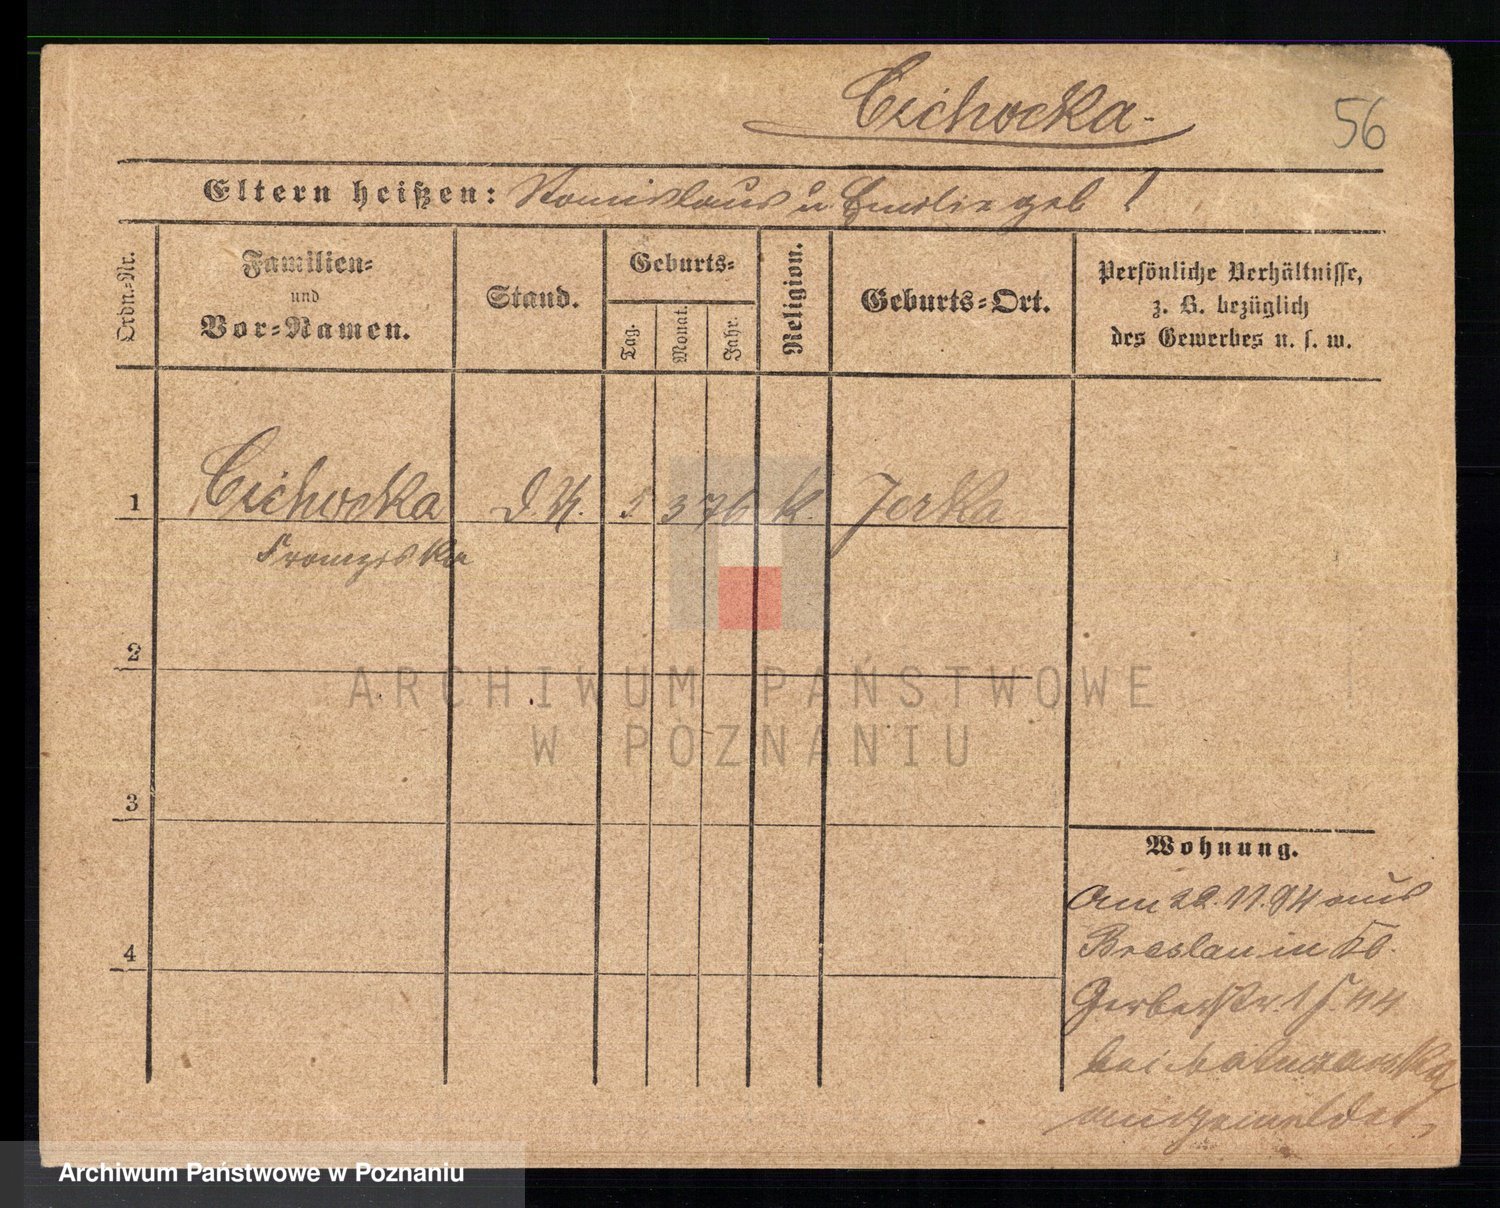 Cichocka.
56
Eltern heißen: Stanislaus u. Emilie geb. ?
Ordn.-Nr.
Familien-
und
Vor-Namen.
Stand.
Geburts-
Tag.
Monat.
Jahr.
Religion.
Geburts-Ort.
Persönliche Verhältnisse,
z. B. bezüglich
des Gewerbes u. s. w.
1 Cichocka D. M. 5 3 76 k. Jerka
Franziska
2
3
4
Wohnung.
Am 22. 11. 94 aus
Breslau in
Gerberstr.
bei
angemeldet,
ARCHIWUM PAŃSTWOWE
W POZNANIU
Archiwum Państwowe w Poznaniu